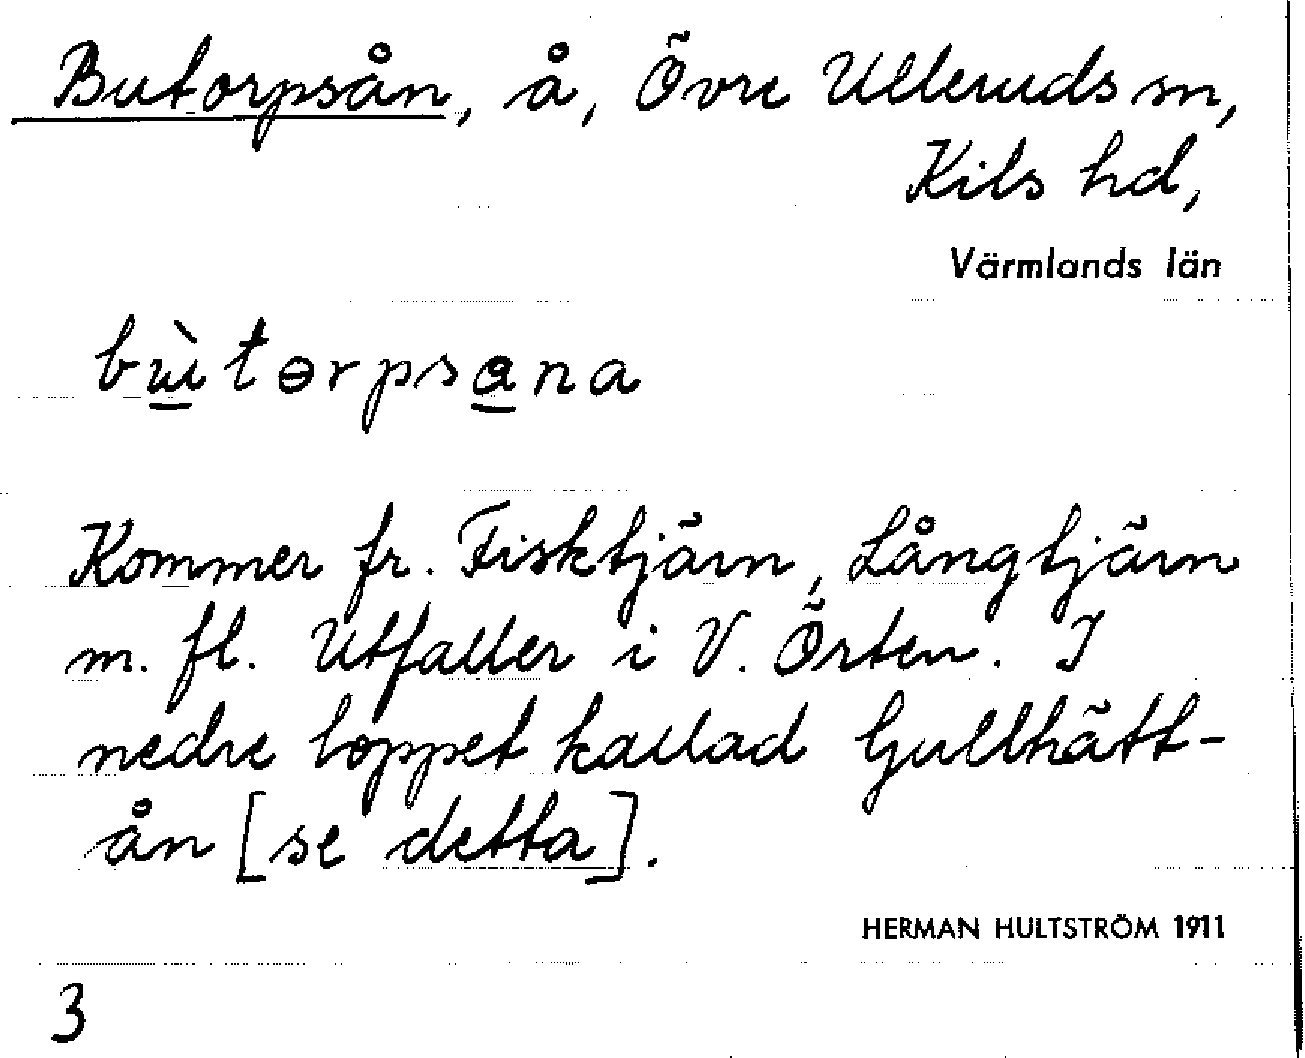 Butorpsån, å, Övre Ulleruds sn,
Kils hd,
Värmlands län
bùtɵrpsana
Kommer fr. Fisktjärn, Långtjärn
m. fl. Utfaller i V. Örten. I
nedre loppet kallad Gullhätt-
ån [se detta].
HERMAN HULTSTRÖM 1911
3